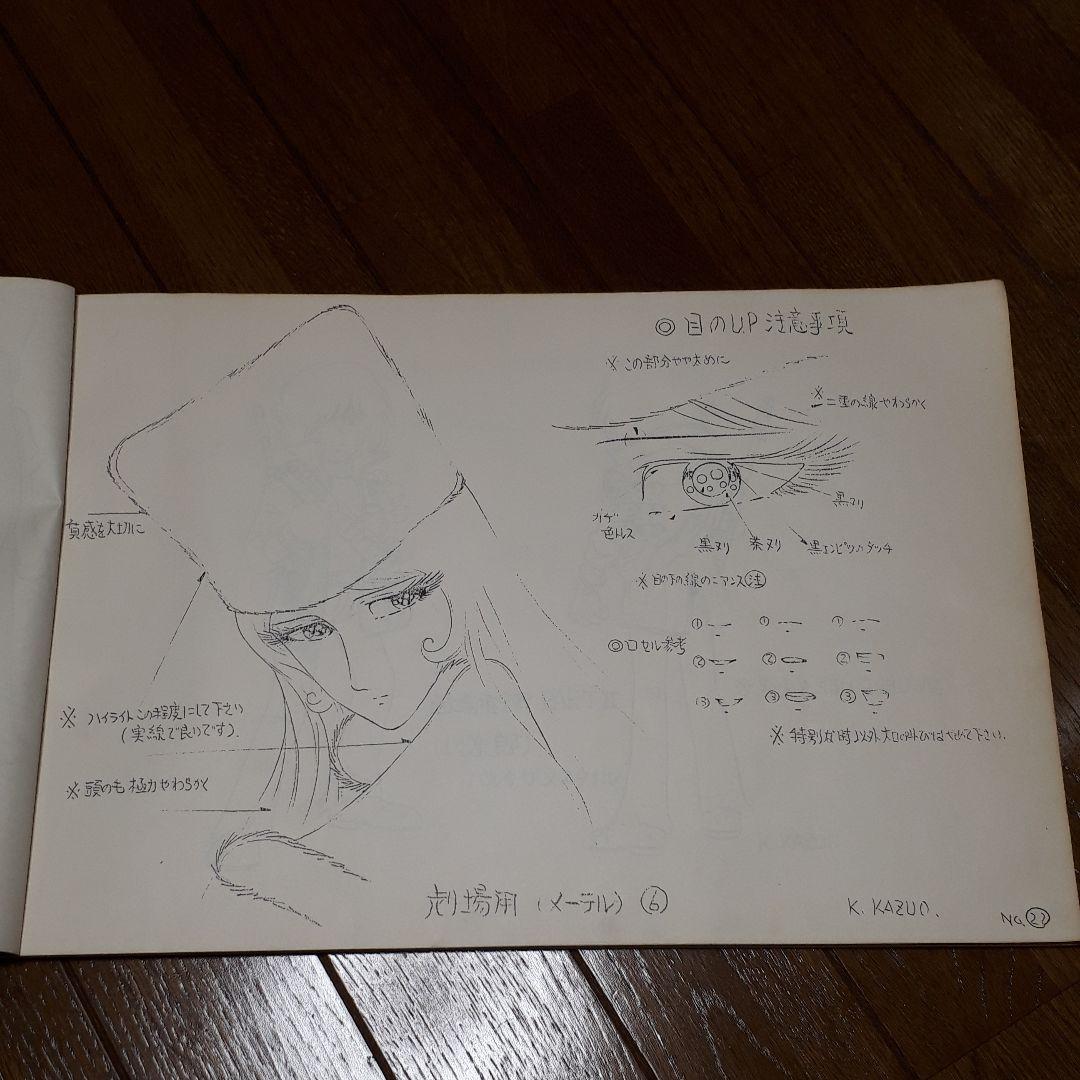 ◎目のU.P 注意事項
※この部分やや太めに
※二重の線やわらかく
質感を大切に
黒ヌリ
カゲ
色トレス
黒ヌリ
茶ヌリ
黒エンピツのタッチ
※目の下の線のニアンス注
◎口セル参考
① ① ①
② ② ②
③ ③ ③
※ハイライトこの程度にして下さい
(実線で良いです).
※特別な時以外大口は
下さい.
※頭のも極力やわらかく
劇場用(メーテル)⑥
K. KAZUO.
NO.㉒